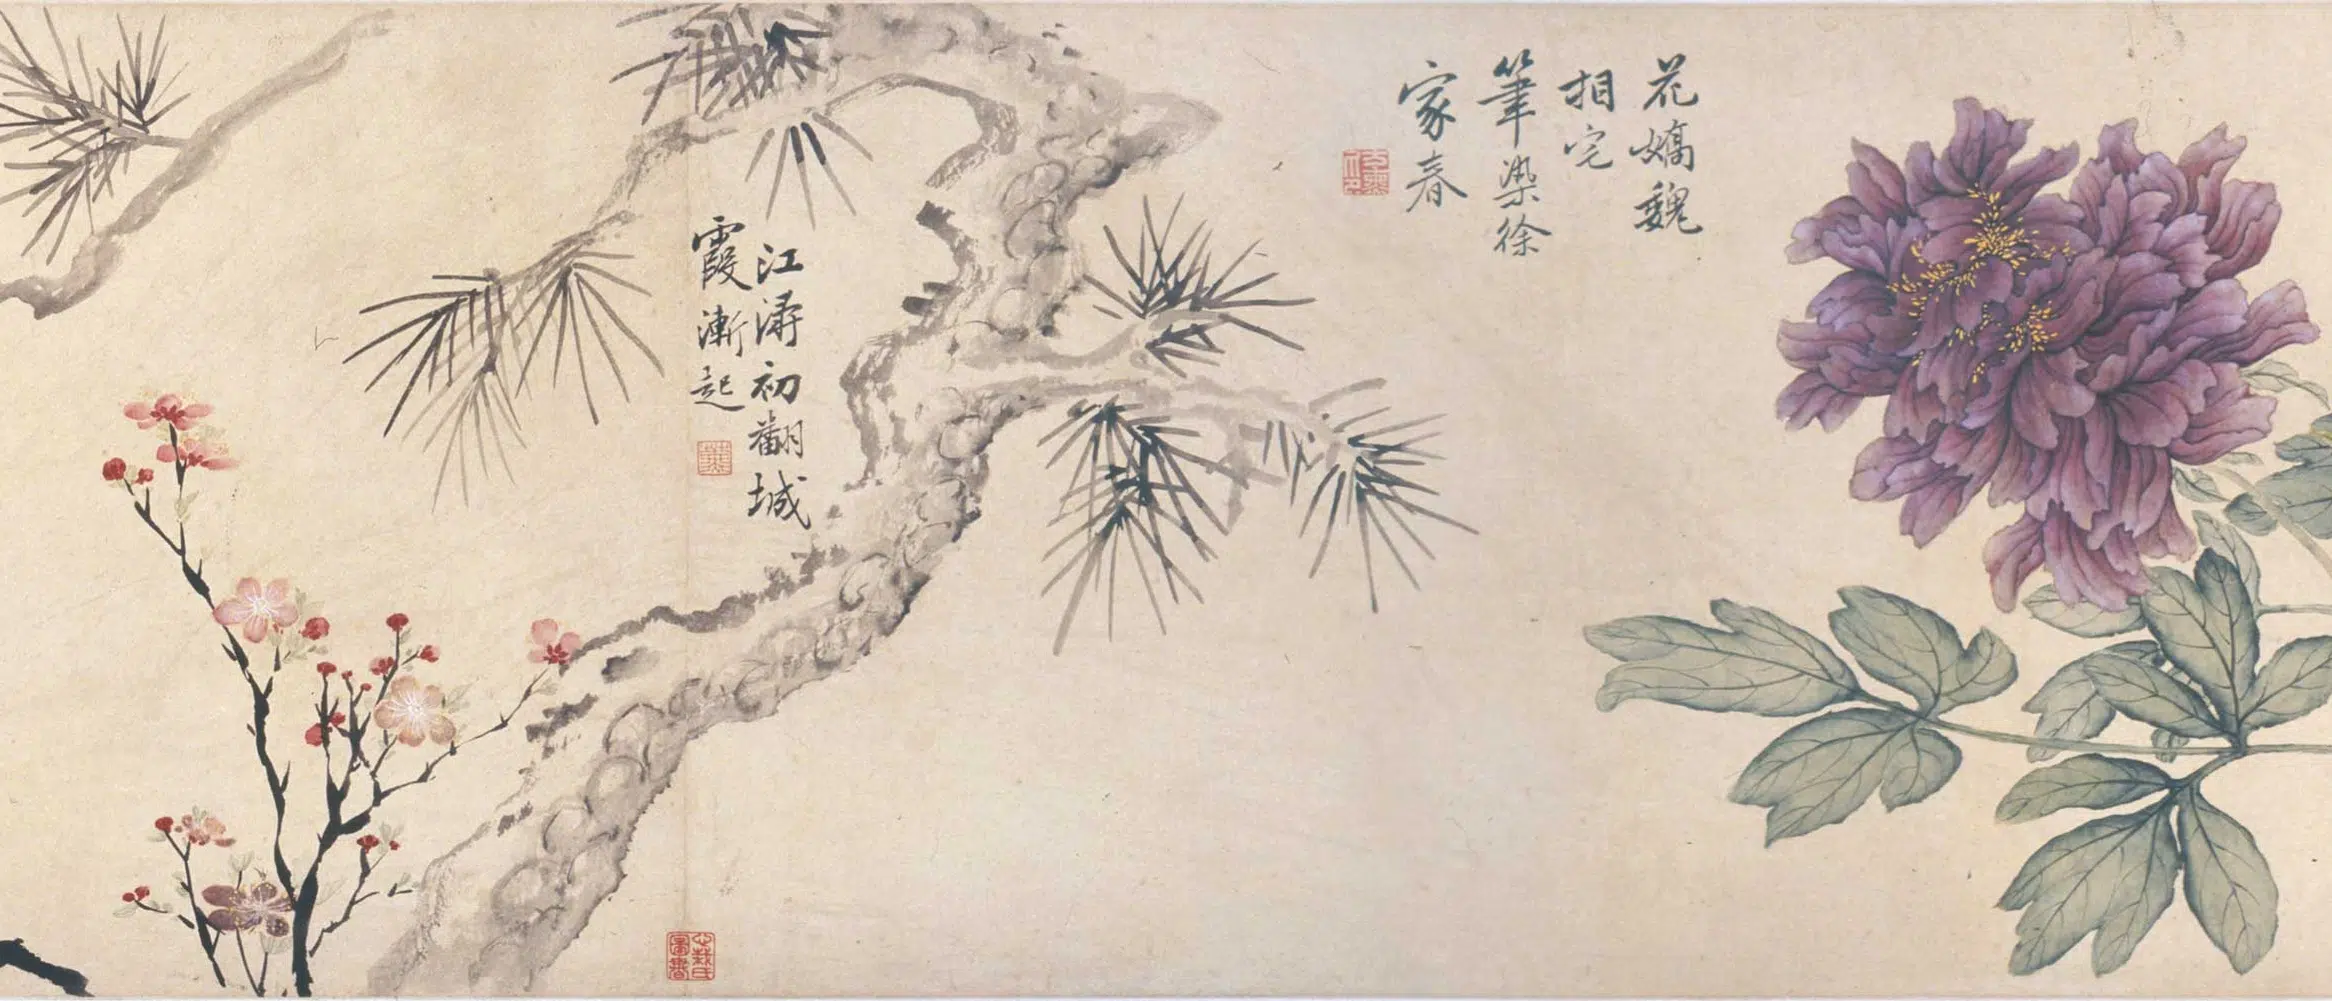 花嬌魏
相宅
筆染徐
家春
江濤初翻城
霞漸起